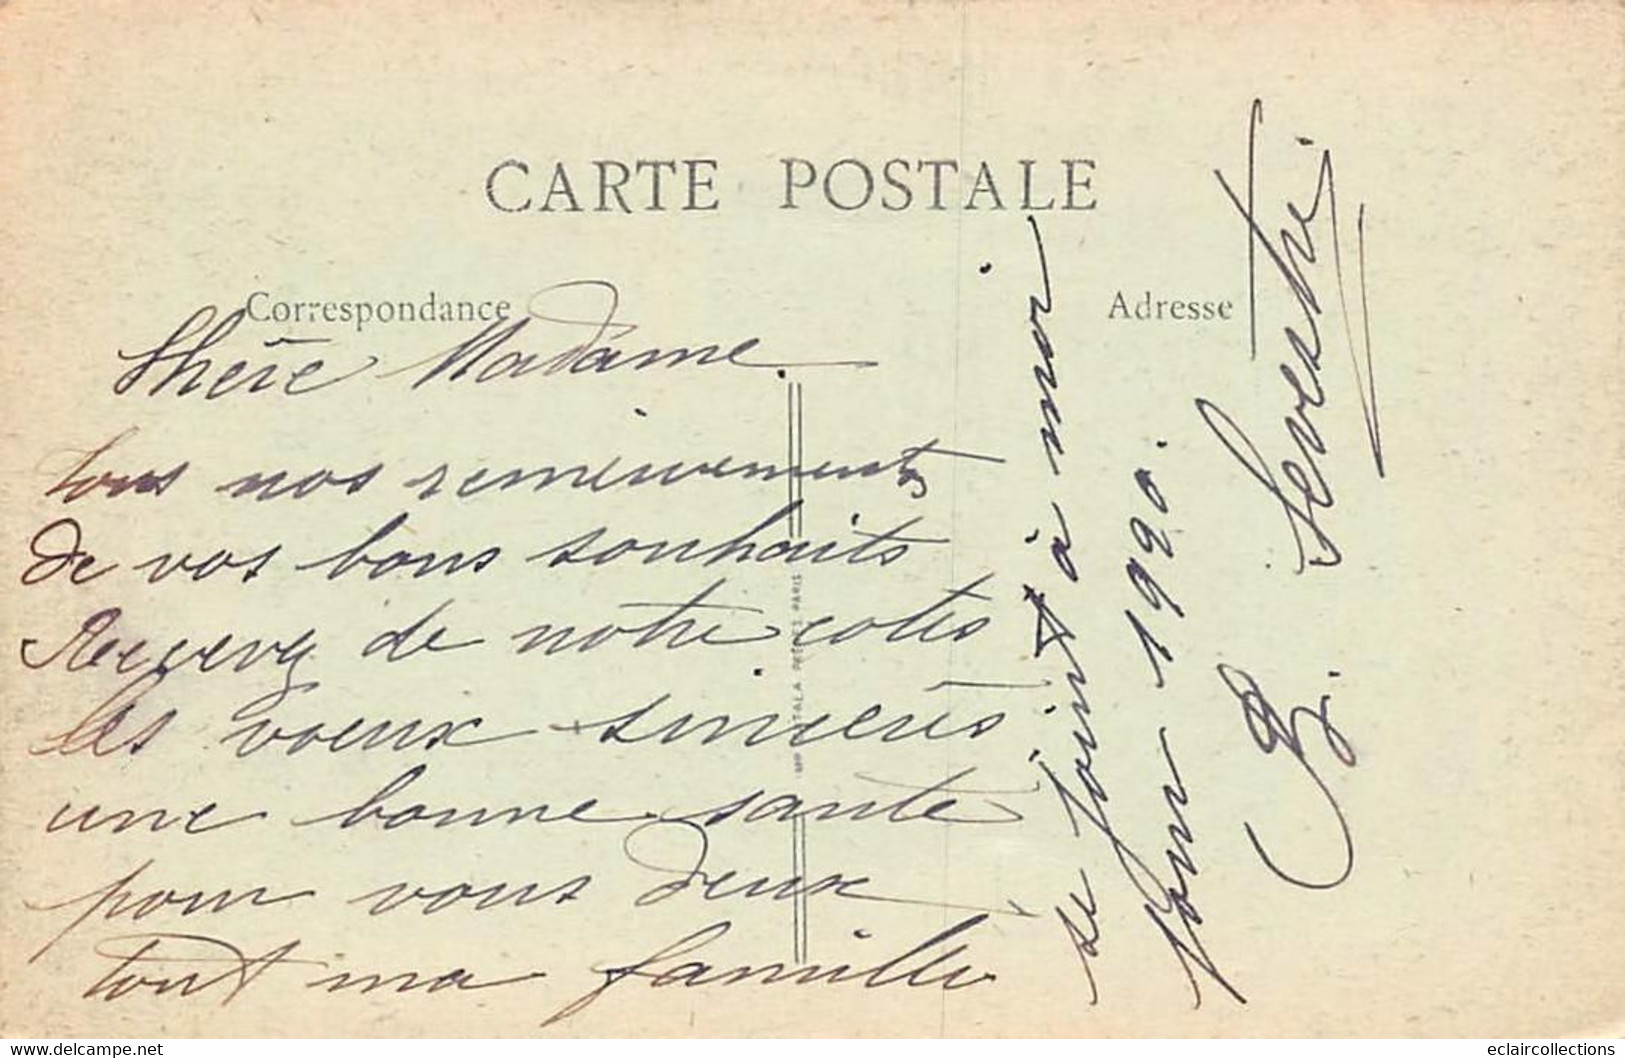 CARTE POSTALE
Correspondance
Adresse
Chère Madame.
tous nos remerciements
de vos bons souhaits
Recevez de notre cotés
les voeux sincères
une bonne santé
pour vous deux
tout ma famille
se joint à moi
pour 1920.
B. Sevestre
PARIS
www.delcampe.net
eclaircollections